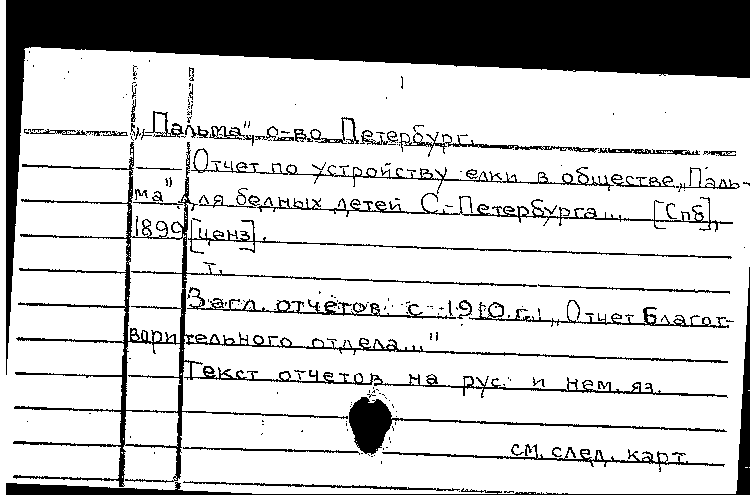 „Пальма", о-во Петербург.
Отчет по устройству елки в обществе „Паль-
ма" для бедных детей С.-Петербурга... [Спб],
1899 [ценз].
т.
Загл. отчетов с 1910.г.: „Отчет Благот-
ворительного отдела..."
Текст отчетов на рус. и нем. яз.
см. след. карт.